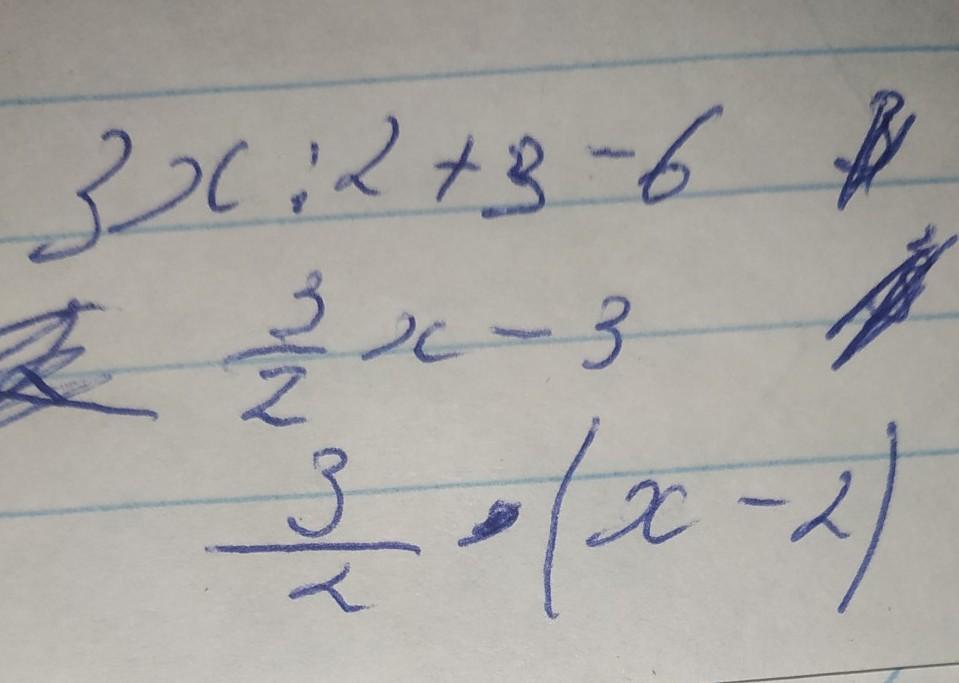 3x : 2 + 3 - 6
3/2 x - 3
3/2 · (x - 2)